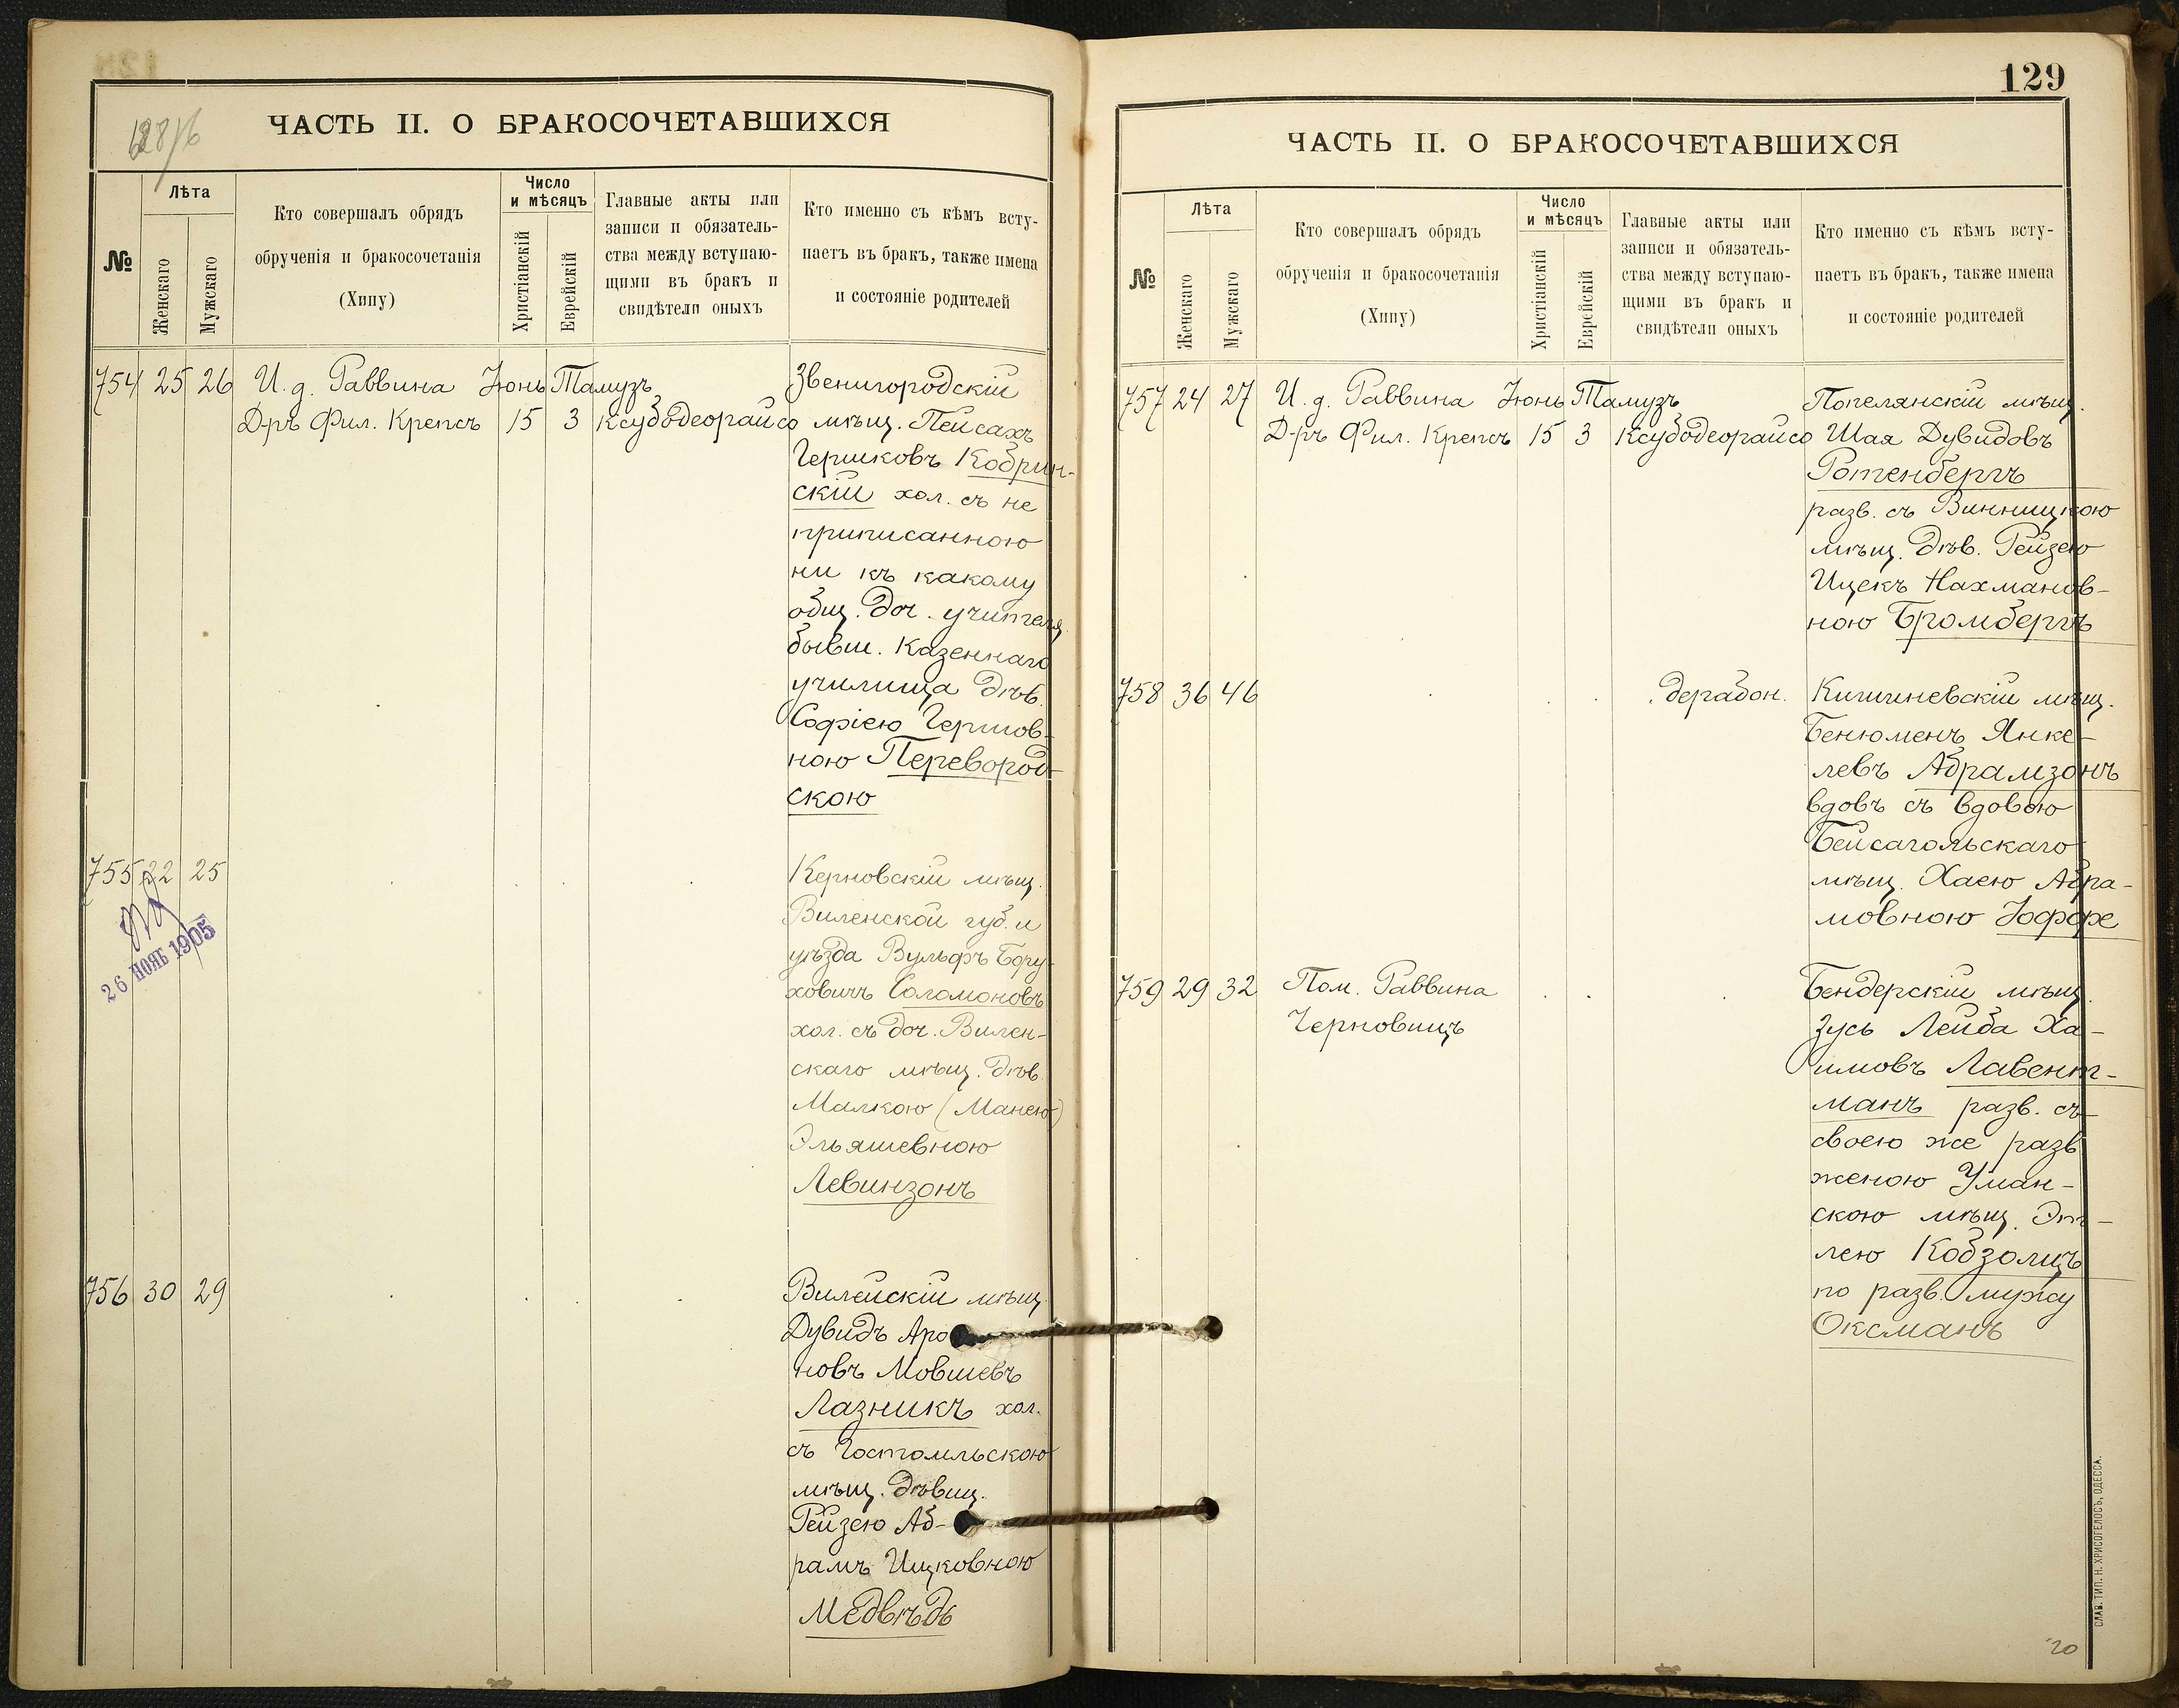 ЧАСТЬ II. О БРАКОСОЧЕТАВШИХСЯ
№
Лѣта
Женскаго
Мужскаго
Кто совершалъ обрядъ
обрученія и бракосочетанія
(Хипу)
Число
и мѣсяцъ
Христіанскій
Еврейскій
Главные акты или
записи и обязатель-
ства между вступаю-
щими въ бракъ и
свидѣтели оныхъ
Кто именно съ кѣмъ всту-
паетъ въ бракъ, также имена
и состояніе родителей
754 25 26 И. д. Раввина Іюнь Тамузъ Звенигородскій
Д-ръ Фил. Крепсъ 15 3 Ксубодеорайсо мѣщ. Пейсахъ
Гершковъ Кобрин-
скій хол. съ не
приписанною
ни къ какому
общ. доч. учителя
бывш. казеннаго
училища дѣв.
Софіею Гершов-
ною Перевород-
скою
755 22 25 Керновскій мѣщ.
Виленской губ. и
уѣзда Вульфъ Бору-
ховичъ Соломоновъ
хол. съ доч. Вилен-
скаго мѣщ. дѣв.
Малкою (Манею)
Эльяшевною
Левинзонъ
26 НОЯБ 1905
756 30 29 Вилейскій мѣщ.
Дувидъ Аро
новъ Мовшевъ
Лазникъ хол.
съ Гостомльскою
мѣщ. дѣвиц.
Рейзею Аб-
рамъ Ицковною
Медвѣдь
129
ЧАСТЬ II. О БРАКОСОЧЕТАВШИХСЯ
№
Лѣта
Женскаго
Мужскаго
Кто совершалъ обрядъ
обрученія и бракосочетанія
(Хипу)
Число
и мѣсяцъ
Христіанскій
Еврейскій
Главные акты или
записи и обязатель-
ства между вступаю-
щими въ бракъ и
свидѣтели оныхъ
Кто именно съ кѣмъ всту-
паетъ въ бракъ, также имена
и состояніе родителей
757 24 27 И. д. Раввина Іюнь Тамузъ Попелянскій мѣщ.
Д-ръ Фил. Крепсъ 15 3 Ксубодеорайсо Шая Дувидовъ
Ротенбергъ
разв. съ Винницкою
мѣщ. дѣв. Рейзею
Ицекъ Нахманов-
ною Бромбергъ
758 36 46 дерабон. Кишиневскій мѣщ.
Бенюменъ Янке-
левъ Абрамзонъ
вдовъ съ вдовою
Бейсагольскаго
мѣщ. Хаею Абра-
мовною Іоффе
759 29 32 Пом. Раввина Бендерскій мѣщ.
Черновицъ Зусь Лейба Ха-
имовъ Лавент-
манъ разв. съ
своею же разв.
женою Уман-
скою мѣщ. Эт-
лею Кобзолицъ
по разв. мужу
Оксманъ
СЛАВ. ТИП. Н. ХРИСОГЕЛОСЪ, ОДЕССА.
20